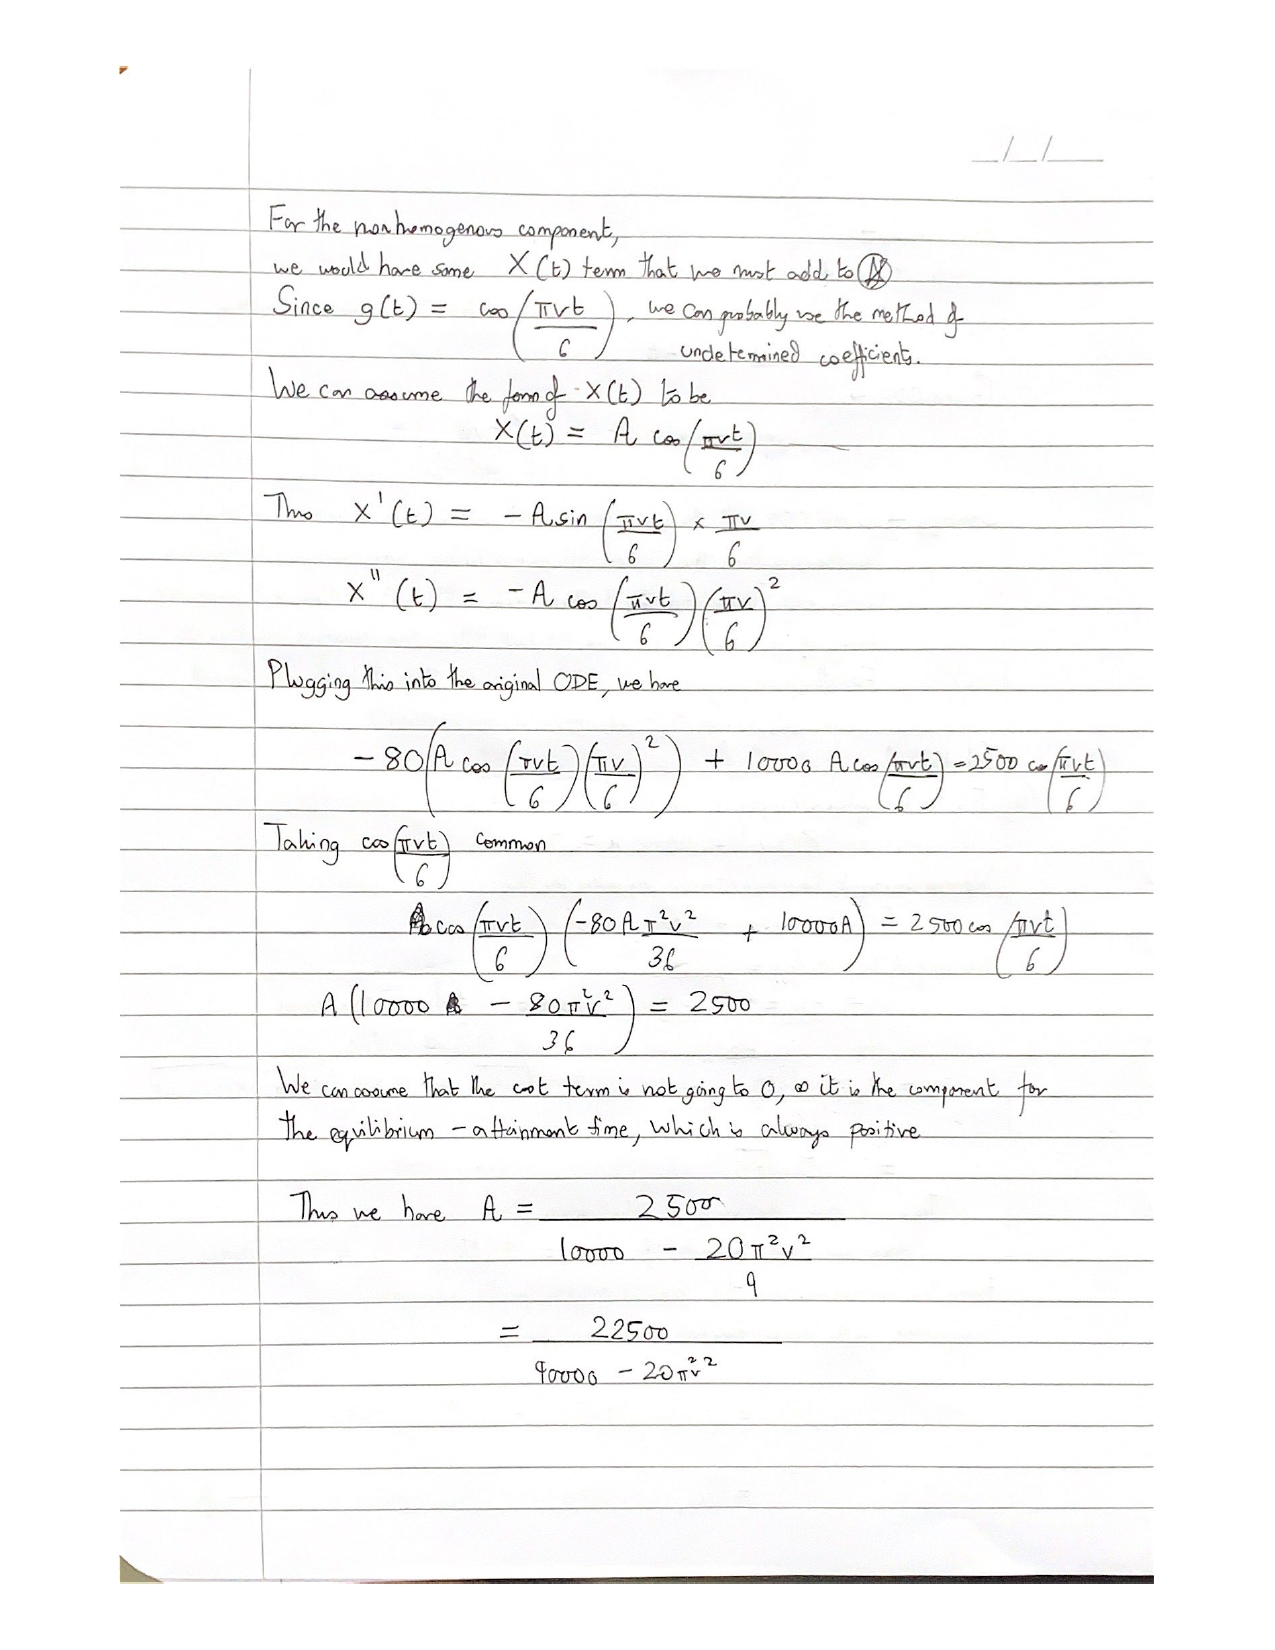 __/__/____
For the nonhomogenous component,
we would have some X(t) term that we must add to
Since g(t) = cos(πvt/6), we can probably use the method of
undetermined coefficients.
We can assume the form of X(t) to be
X(t) = A cos(πvt/6)
Thus X'(t) = - A sin(πvt/6) × πv/6
X''(t) = - A cos(πvt/6)(πv/6)²
Plugging this into the original ODE, we have
- 80(A cos(πvt/6)(πv/6)²) + 10000 A cos(πvt/6) = 2500 cos(πvt/6)
Taking cos(πvt/6) common
cos(πvt/6)(-80Aπ²v²/36 + 10000A) = 2500 cos(πvt/6)
A(10000 - 80π²v²/36) = 2500
We can assume that the term is not going to 0, as it is the component for
the equilibrium - attainment time, which is always positive
Thus we have A = 2500/(10000 - 20π²v²/9)
= 22500/(90000 - 20π²v²)